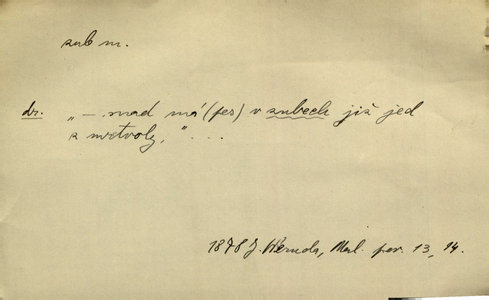 zub m.
dr. „ – snad má (pes) v zubech již jed
z mrtvoly, “ . . .
1878 J. Neruda, Mal. pov. 13, 14.